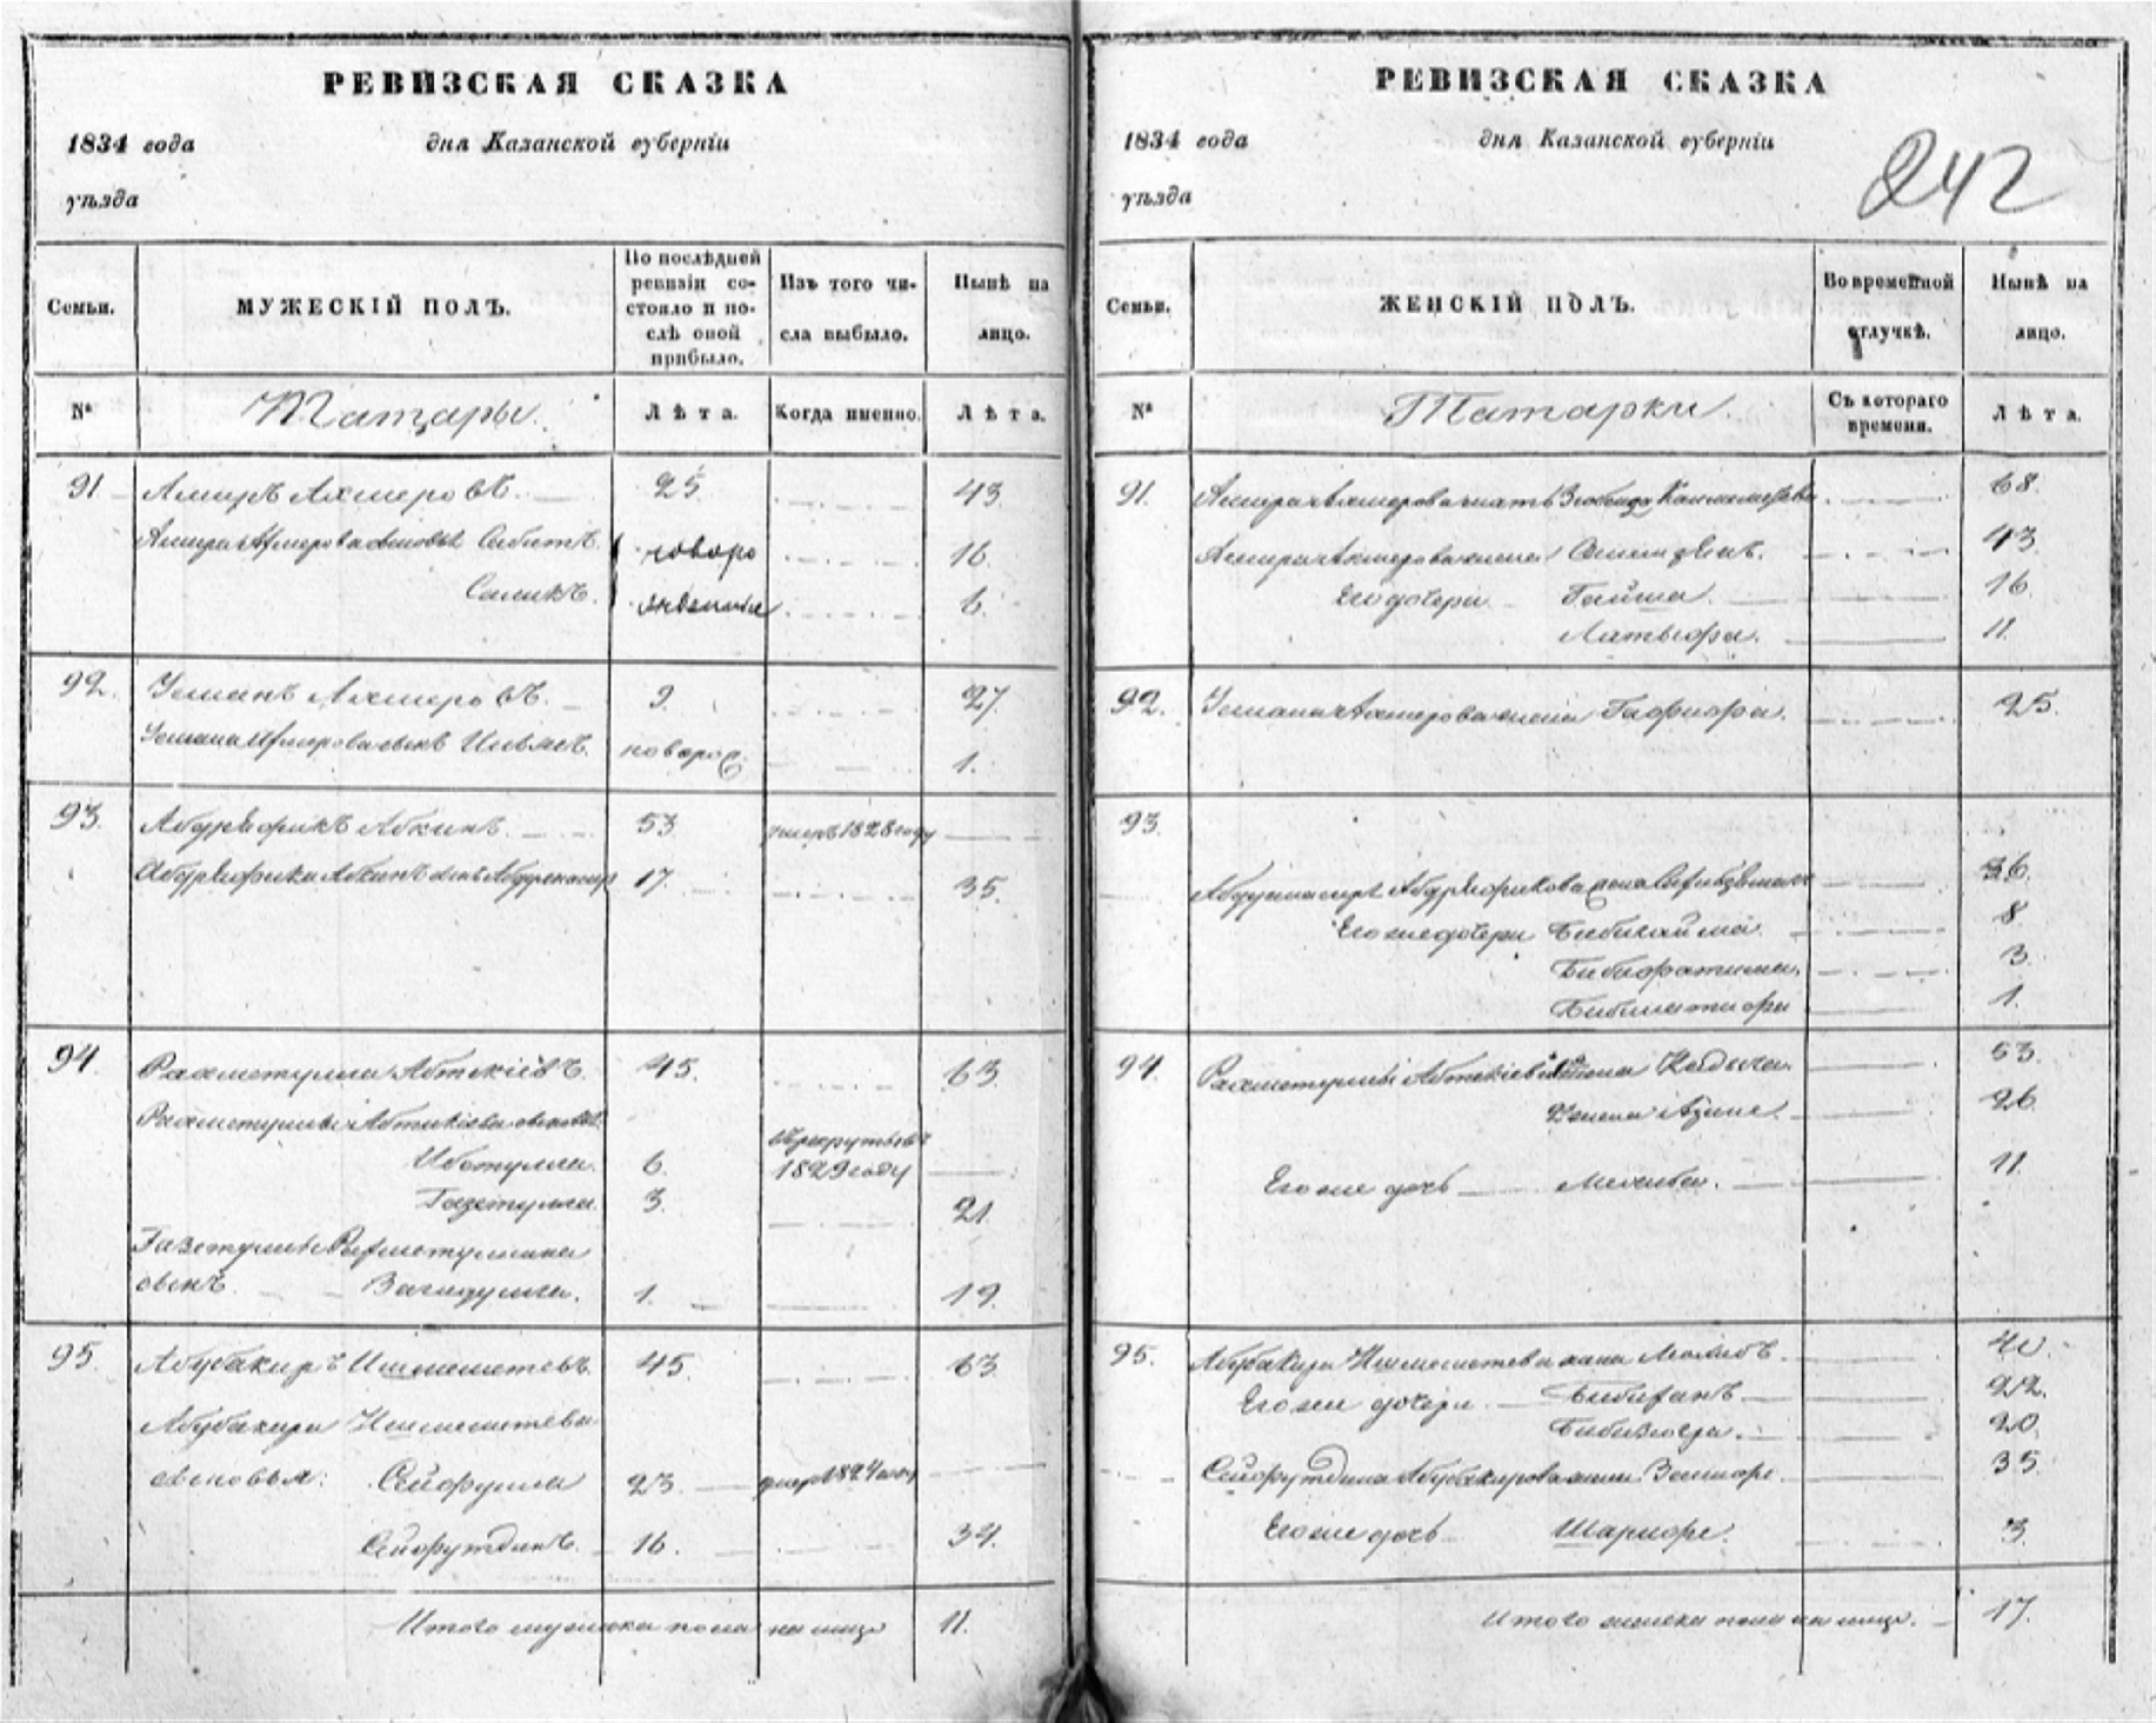 РЕВИЗСКАЯ СКАЗКА
1834 года дня Казанской губерніи
уѣзда
Семьи.
МУЖЕСКІЙ ПОЛЪ.
По послѣдней ревизіи со-
стояло и по-
слѣ оной
прибыло.
Изъ того чи-
сла выбыло.
Нынѣ на
лицо.
№
Татары.
Лѣта.
Когда именно.
Лѣта.
91 Амиръ Ахмеровъ. 25 43.
Амира Ахмерова сыновья Сабитъ. новоро 16.
Саликъ. жденные 6.
92. Усманъ Ахмеровъ. 9. 27.
новорож. 1.
93. Абдрафикъ Абкинъ. 53 умеръ 1828 году
17. 35.
94 Рахметулла Абтекіевъ. 45. 63.
Рахметуллы Абтекіева сыновья
6. въ рекруты въ
1829 году
Газетулла. 3. 21
Газетуллы Рахметуллина
сынъ Вагидулла. 1. 19.
95. Абубакиръ Ишмеметевъ. 45. 63.
Абубакира Ишмеметева
сыновья: Сейфулла 23. умеръ 1824 году
Сейфутдинъ. 16. 34.
Итого мужеска пола на лицо 11.
РЕВИЗСКАЯ СКАЗКА
1834 года дня Казанской губерніи
уѣзда
242
Семьи.
ЖЕНСКІЙ ПОЛЪ.
Во временной
отлучкѣ.
Нынѣ на
лицо.
№
Татарки.
Съ котораго
времени.
Лѣта.
91. Амира Ахмерова мать 68.
Амира Ахмерова жена 43.
Его дочери Гайша. 16.
Латыфа. 11.
92. Усмана Ахмерова жена Гафифа. 25.
93.
жена 36.
Его же дочери Бибикайма. 8.
Бибифатима. 3.
1.
94. Рахметуллы Абтекіева жена Хадыча. 53.
2 жена 26
Его же дочь 11.
95. Абубакира Ишмеметева жена 40.
Его же дочери Бибиханъ 22.
20.
Сейфутдина Абубакирова жена 35
Его же дочь 3.
Итого женска пола на лицо. 17.